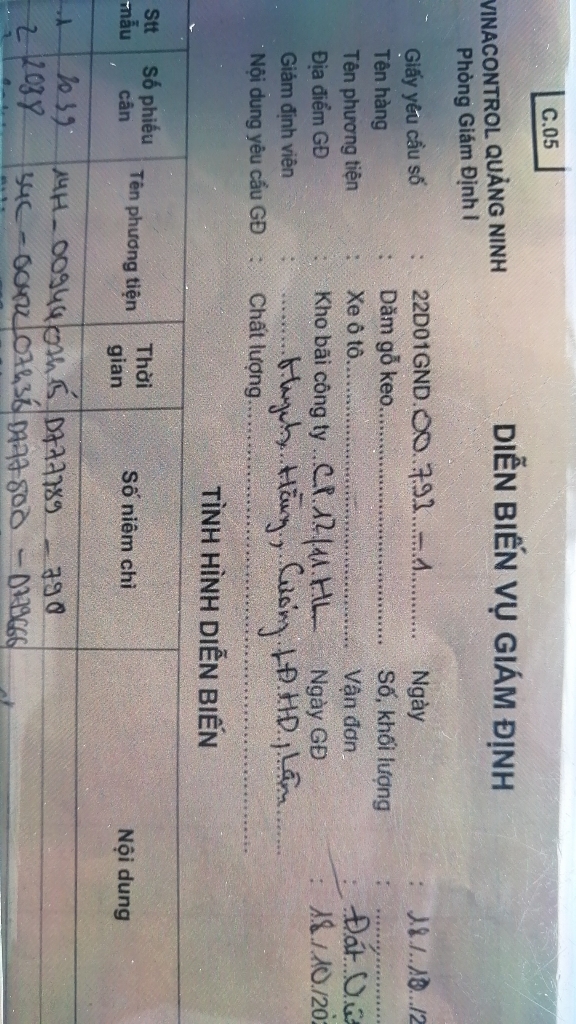 C.05
VINACONTROL QUẢNG NINH
Phòng Giám Định I
DIỄN BIẾN VỤ GIÁM ĐỊNH
Giấy yêu cầu số : 22D01GND.00.792...-1 Ngày : 18/.10./2
Tên hàng : Dăm gỗ keo Số, khối lượng :
Tên phương tiện : Xe ô tô Vận đơn : Đất
Địa điểm GĐ : Kho bãi công ty ..CP.12/11.HL Ngày GĐ : 18/10/202
Giám định viên : Huynh, Hằng, Cường, LĐ.HD., Lâm
Nội dung yêu cầu GĐ : Chất lượng
TÌNH HÌNH DIỄN BIẾN
Stt mẫu Số phiếu cân Tên phương tiện Thời gian Số niêm chì Nội dung
1 2039 14H-00944 07h15 D777789 - 790
2 2038 34C-00472 07h36 D777800 -